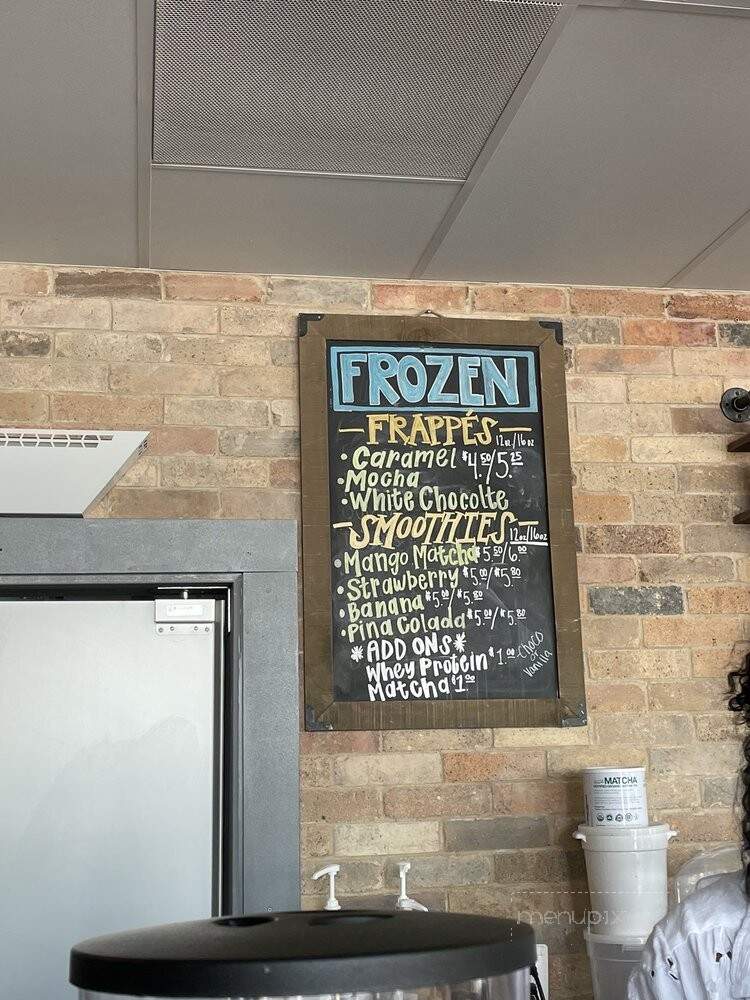 FROZEN
FRAPPÉS 12oz/16oz
• Caramel $4.50/5.25
• Mocha
• White Chocolte
SMOOTHIES 12oz/16oz
• Mango Matcha $5.50/6.00
• Strawberry $5.00/$5.80
• Banana $5.00/$5.80
• Pina Colada $5.00/$5.80
* ADD ONS *
Whey Protein $1.00 - Choco or Vanilla
Matcha $1.00
MATCHA
menupix